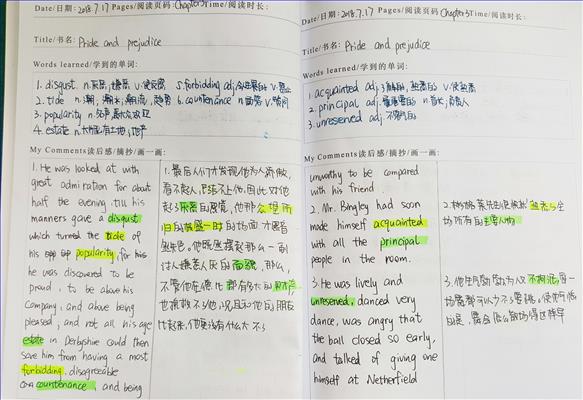 Date/日期: 2018.7.17 Pages/阅读页码: Chapter3 Time/阅读时长:
Title/书名: Pride and prejudice
Words learned/学到的单词:
1. disgust n.厌恶;
5. forbidding adj.
2. tide n.潮,潮水,潮流,趋势
6. countenance n.面容 v.赞同
3. popularity n.名声
4. estate n.大片私有土地,地产
My Comments读后感/摘抄/画一画:
1. He was looked at with
great admiration for about
half the evening, till his
manners gave a disgust
which turned the tide of
his popularity, for his
he was discovered to be
proud, to be above his
company, and above being
pleased, and not all his
estate in Derbyshire could then
save him from having a most
forbidding, disagreeable
countenance, and being
1. 最后人们才发现他为人骄傲,
看不起人,巴结不上他,因此对他
起了厌恶的感情,他那众望所
归的极盛一时的场面才黯
然失色。他既然摆起那么一副
讨人嫌惹人厌的面貌,那么,
不管他在德比郡有多大的财产,
也挽救不了他,况且和他的朋友
比起来,他更没有什么大不了
Date/日期: 2018.7.17 Pages/阅读页码: Chapter3 Time/阅读时长:
Title/书名: Pride and prejudice
Words learned/学到的单词:
1. acquainted adj.了解的,熟悉的 v.使熟悉
2. principal adj.最重要的 n.首长,负责人
3. unreserved adj.不保留的
My Comments读后感/摘抄/画一画:
unworthy to be compared
with his friend.
2. Mr. Bingley had soon
made himself acquainted
with all the principal
people in the room.
3. He was lively and
unreserved, danced very
dance, was angry that
the ball closed so early,
and talked of giving one
himself at Netherfield
2. 彬格莱先生很快就熟悉了全
场所有的主要人物
3. 他生气勃勃,为人又不拘泥,每一
场舞都可以少不了要跳。使他气恼
的是,舞会怎么散场得这样早